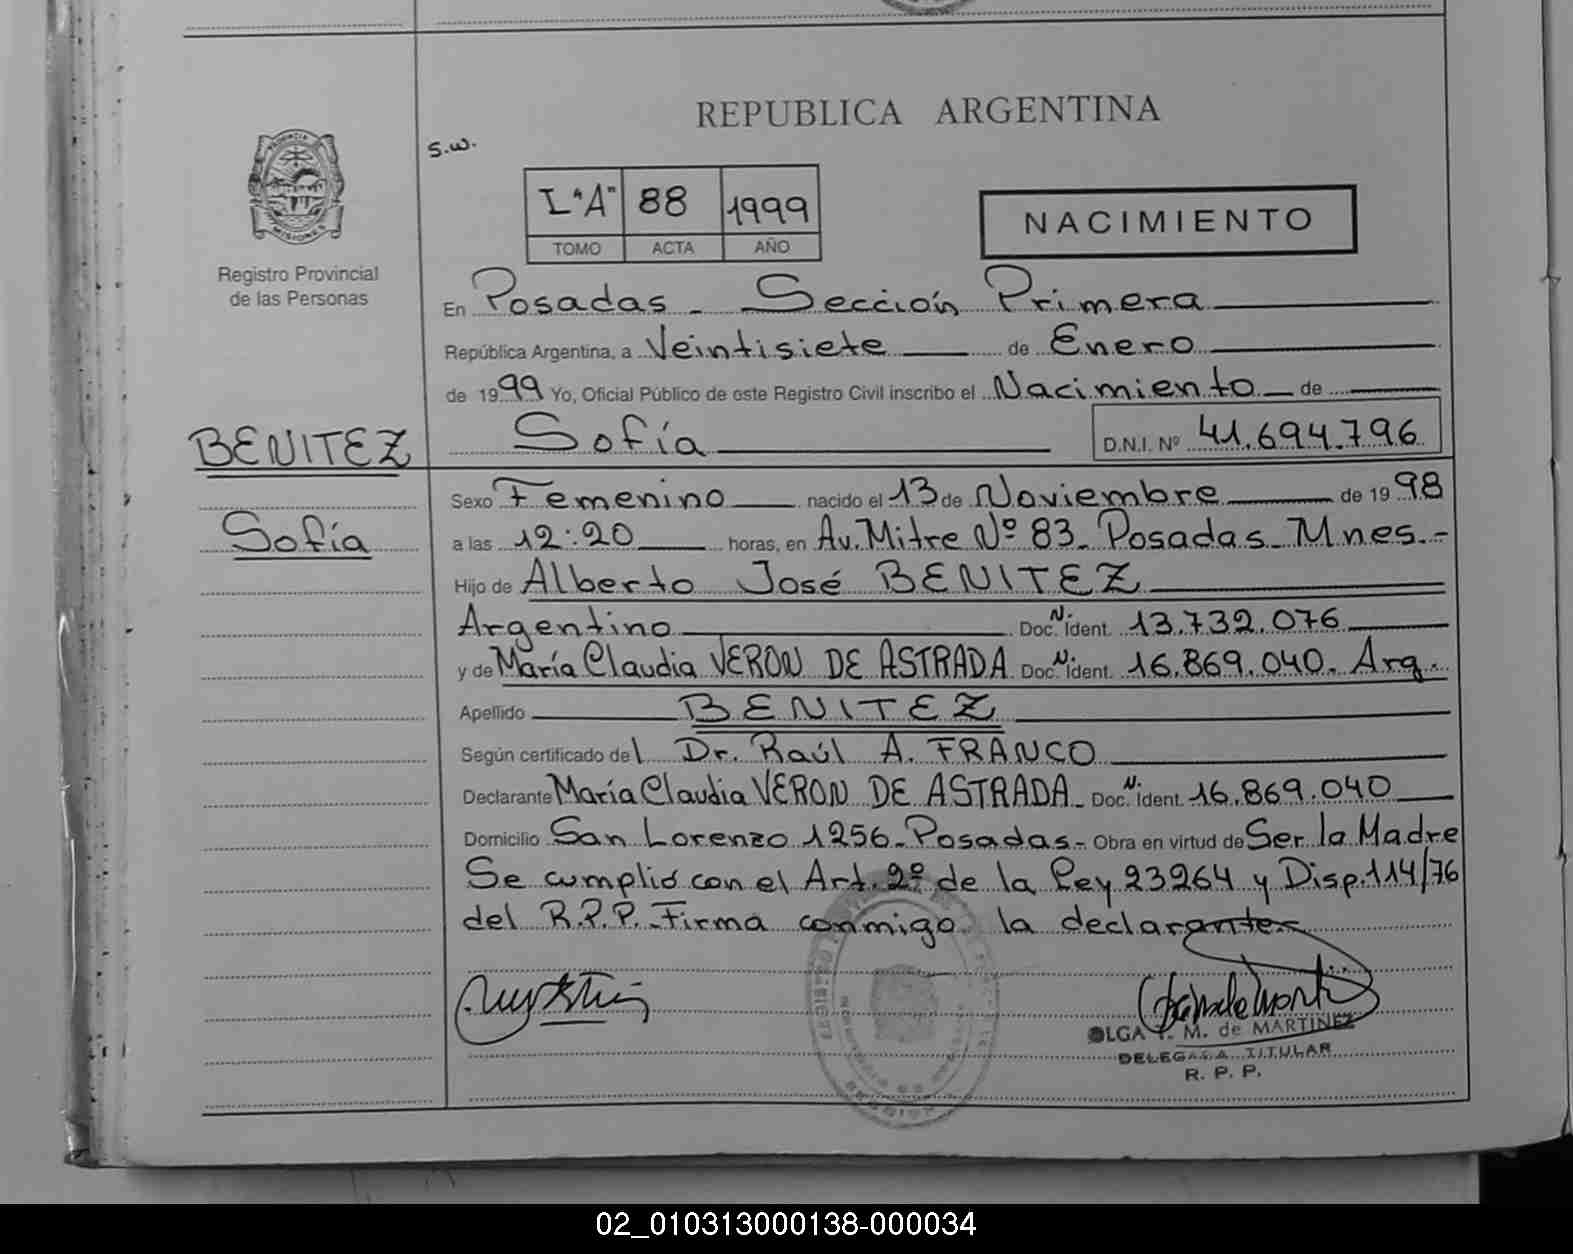 REPUBLICA ARGENTINA
s.w.
PROVINCIA
MISIONES
Registro Provincial
de las Personas
I "A" 88 1999
TOMO ACTA AÑO
NACIMIENTO
En Posadas - Sección Primera
República Argentina, a Veintisiete de Enero
de 1999 Yo, Oficial Público de este Registro Civil inscribo el Nacimiento de
BENITEZ
Sofía
Sofía D.N.I. Nº 41.694.796
Sexo Femenino nacido el 13 de Noviembre de 1998
a las 12:20 horas, en Av. Mitre Nº 83 - Posadas - Mnes.-
Hijo de Alberto José BENITEZ
Argentino Doc. N. Ident. 13.732.076
y de María Claudia VERON DE ASTRADA Doc. N. Ident. 16.869.040. Arg.
Apellido BENITEZ
Según certificado del Dr. Raúl A. FRANCO
Declarante María Claudia VERON DE ASTRADA - Doc. N. Ident. 16.869.040
Domicilio San Lorenzo 1256 - Posadas.- Obra en virtud de Ser la Madre
Se cumplió con el Art. 2º de la Ley 23264 y Disp. 114/76
del R.P.P. - Firma conmigo la declarante-
OLGA M. de MARTINEZ
DELEGADA TITULAR
R. P. P.
02_010313000138-000034